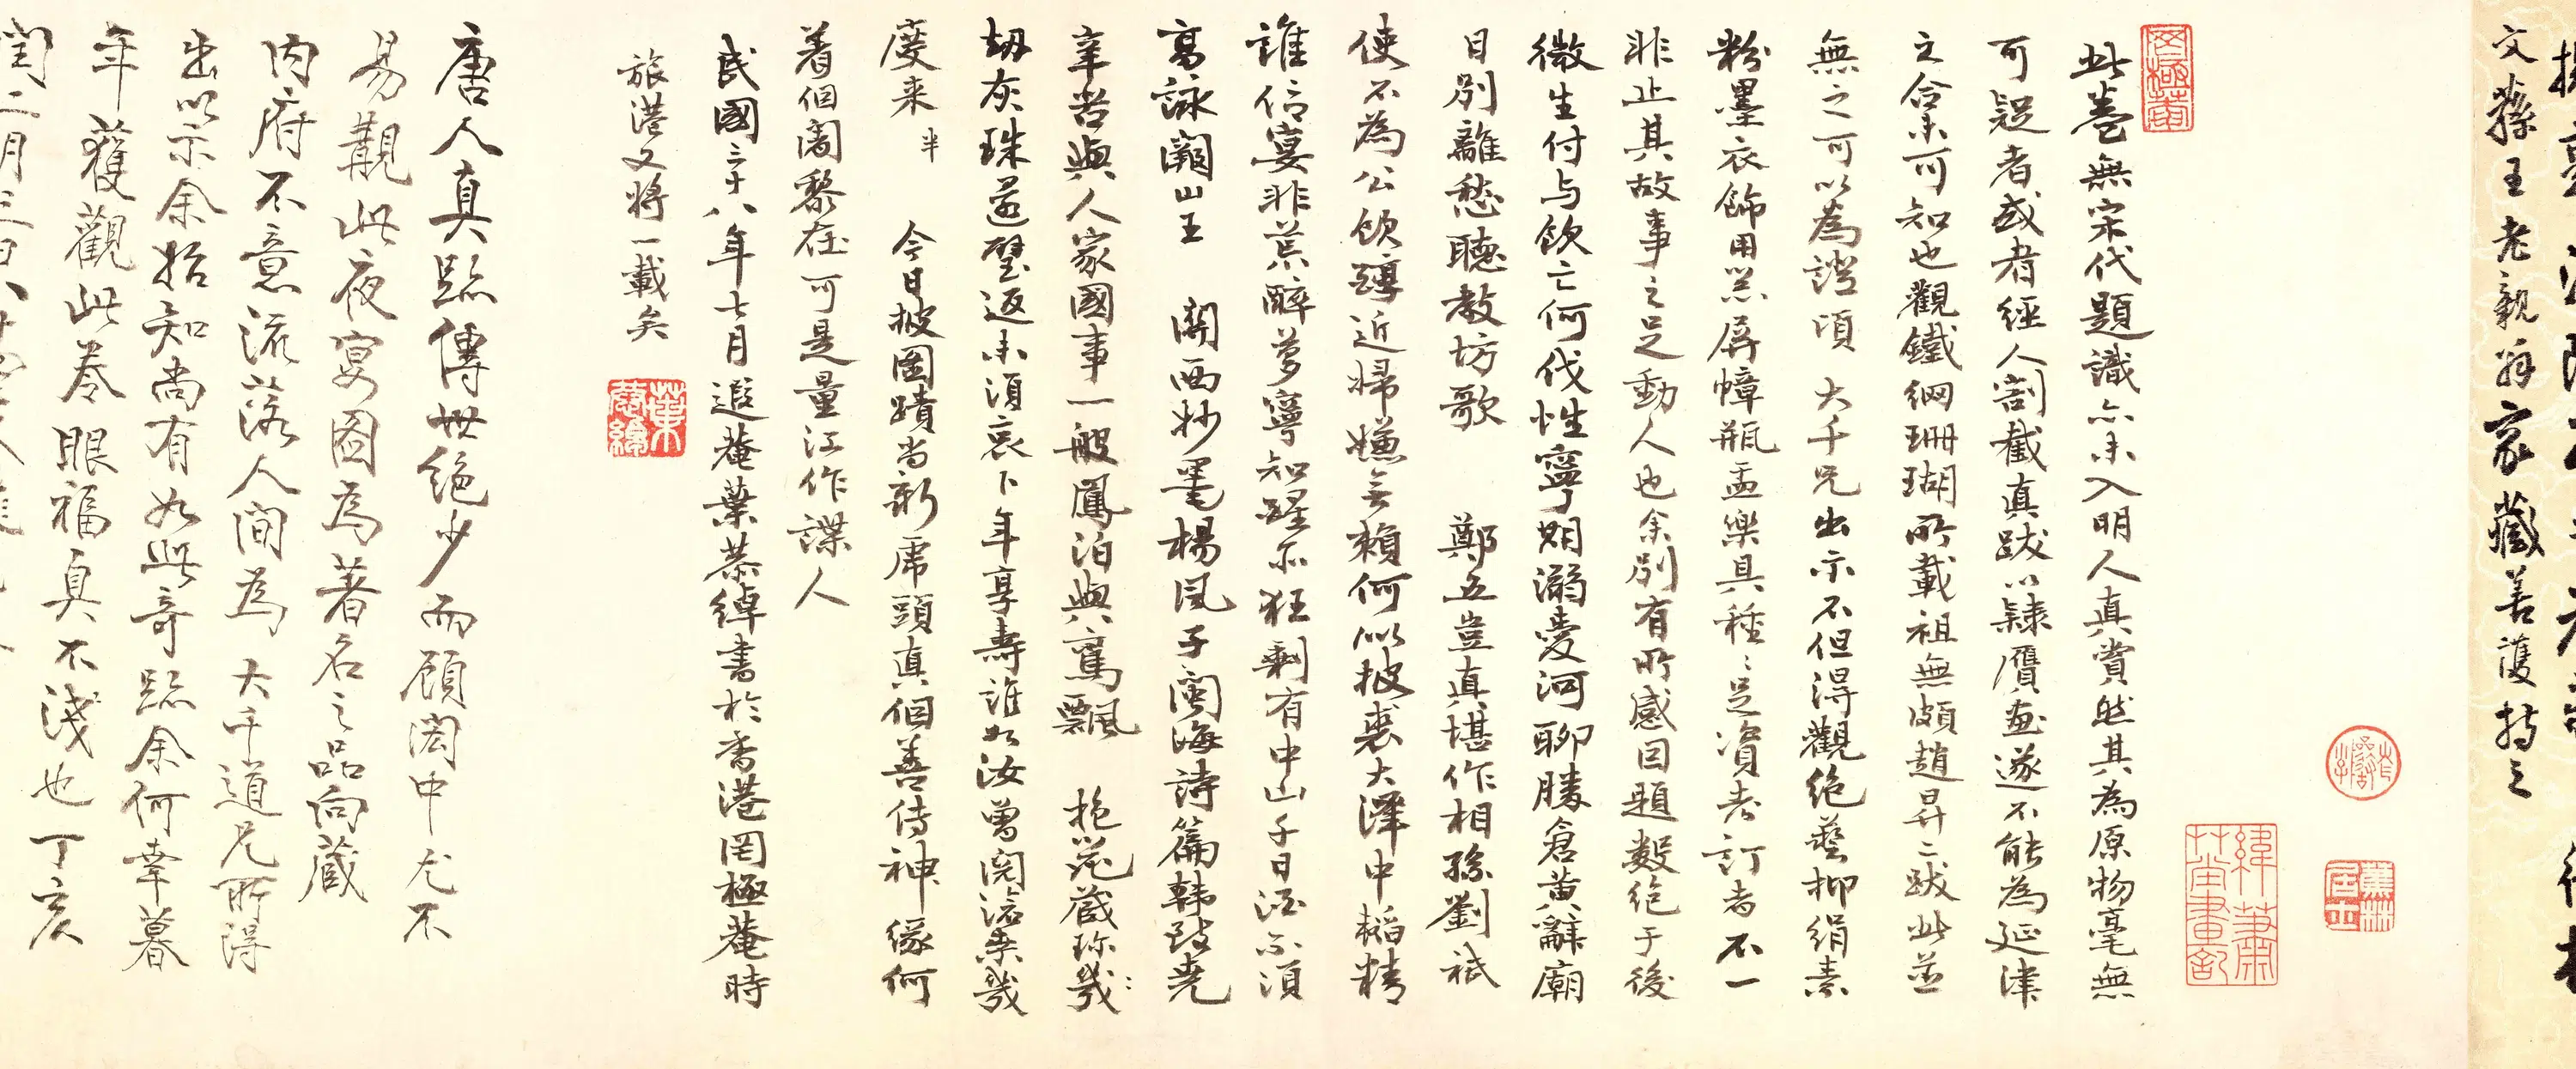 文孫王老親翁家藏善護持之
此卷無宋代題識亦未入明人真賞然其為原物毫無
可疑者或者經人割截真跋以隸贗畫遂不能為延津
之合未可知也觀鐵網珊瑚所載祖無頗趙昇二跋此並
無之可以為證頃 大千兄出示不但得觀絕藝抑絹素
粉墨衣飾用器屏幛瓶盂樂具種種足資考訂者不一
非止其故事之足動人也余別有所感因題數絕于後
微生付与飲亡何伐性寧期溺愛河聊勝倉黃辭廟
日別離愁聽教坊歌 鄭五豈真堪作相孫劉祇
使不為公飲醇近婦嫌無賴何似披裘大澤中韜精
誰信宴非荒醉夢寧知醒亦狂剩有中山千日酒不須
高詠灞山王 關西抄墨楊風子閩海詩篇韓致堯
辛苦與人家國事一般鳳泊與鸞飄 抱瓮藏珍幾
劫灰珠還璧返未須哀卜年享壽誰如汝曾閱滄桑幾
度来 半 今日披圖蹟尚新虎頭真個善傳神緣何
著個闍黎在可是量江作諜人
民國三十八年七月遐菴葉恭綽書於香港罔極菴時
旅港又將一載矣
葉恭綽
唐人真跡傳世絕少而顧閎中尤不
易覯此夜宴圖為著名之品向藏
內府不意流落人間為 大千道兄所得
出以示余始知尚有如此奇跡余何幸暮
年獲觀此卷眼福真不淺也丁亥
閏二月三日